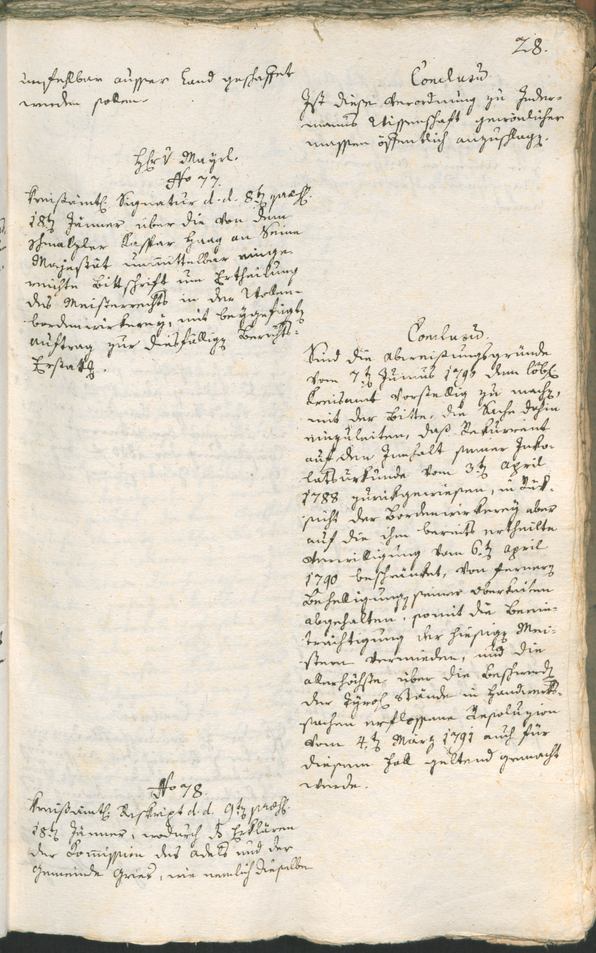 28.
unfehlbar ausser Land geschaffet
werden sollen.
Conclusum.
Ist diese Verordnung zu Jeder-
manns Wissenschaft gewönlicher
massen öffentlich anzuschlag.
H. v. Mayrl.
No 77.
Kreisämtl Signatur d. d. 8t praes.
18t Jänner über die von dem
Schnalzler Kaspar Haag an Seine
Majestät unmittelbar einge-
reichte Bittschrift um Ertheilung
des Meisterrechts in der Wollen-
bordenwirkerey, mit beygefügt
Auftrag zur diesfällig Berichts-
Erstattg.
Conclusum.
Sind die Abweisungsgründe
vom 7t Junius 1790 dem löbl
Kreisamt vorstellig zu mach,
mit der Bitte, die Sache dahin
einzuleiten, daß Rekurrent
auf den Innhalt seiner Inko-
latsurkunde vom 3t April
1788 zurückgewiesen, in Rük-
sicht der Bordenwirkerey aber
auf die ihm bereits ertheilte
Verwilligung vom 6t April
1790 beschränket, von fernern
Behelligung seiner Obrkeiten
abgehalten, somit die Beein-
trächtigung der hiesig Mei-
stern vermieden, und die
allerhöchste über die Beschwerd
der Tyrol Stände in Handwerks-
sachen erflossene Resoluzion
vom 4t März 1791 auch für
diesem Fall geltend gemacht
werde.
No 78.
Kreisämtl Reskript d. d. 9t praes.
18t Jänner, wodurch das Erklären
der Kommission des Adels und der
Gemeinde Gries, wie nemlich dieselbe